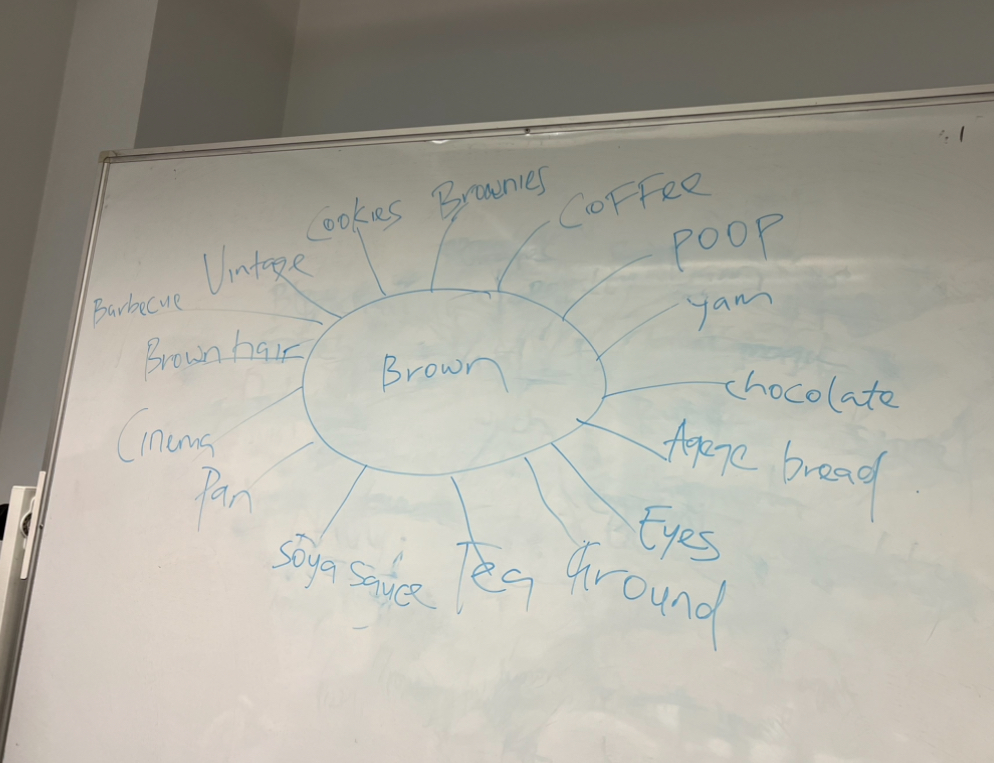 Cookies
Brownies
COFFEE
POOP
yam
chocolate
Agege bread
Eyes
Ground
Tea
Soya sauce
Pan
Cinema
Brown hair
Barbecue
Vintage
Brown